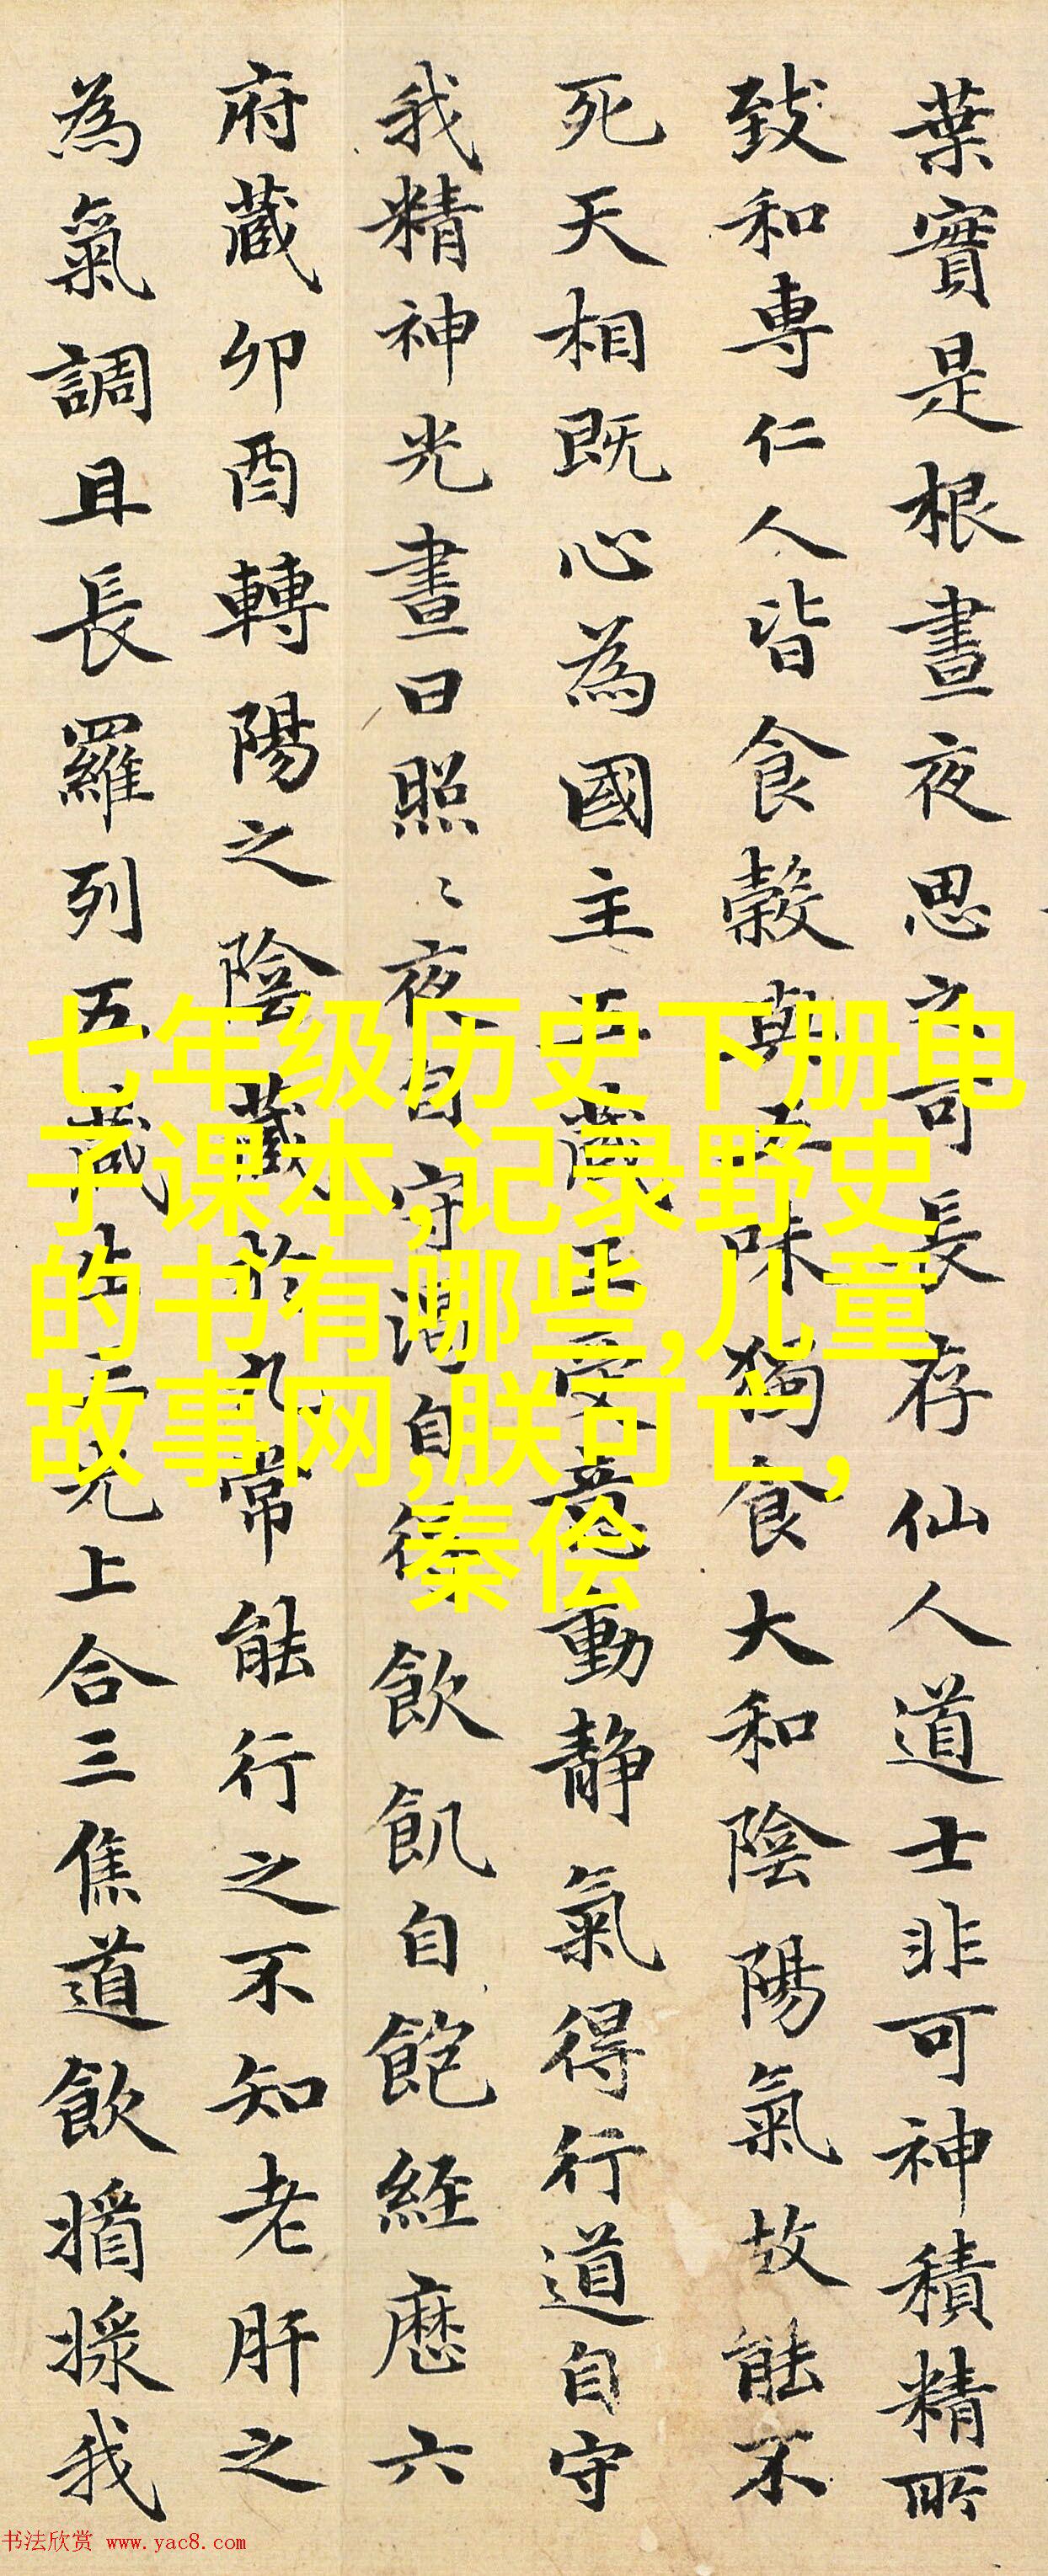 葉實是根晝夜思之可長存仙人道士非可神積精所
致和專仁人皆食穀與五味獨食大和陰陽氣故能不
死天相既心為國主五藏王受意動静氣得行道自守
我精神光晝日照〻夜自守渴自得飲飢自飽經歷六
府藏卯酉轉陽之陰藏於九常能行之不知老肝之
為氣調且長羅列五藏生三光上合三焦道飲𤖼採我
七年级历史下册电
子课本,记录野史
的书有哪些,儿童
故事网,朕可亡,
秦侩
书法欣赏 www.yac8.com